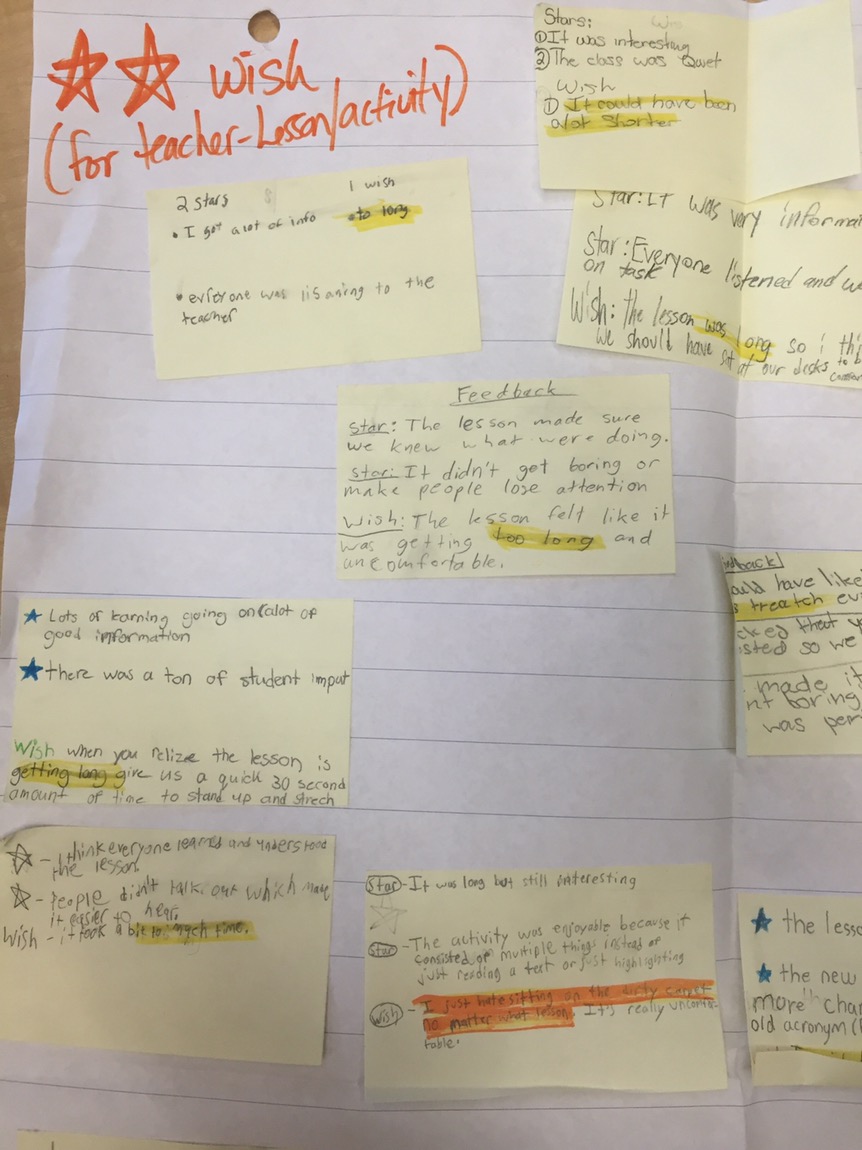 wish
(for teacher-Lesson/activity)
Stars:
① It was interesting
② The class was Quiet
Wish
① It could have been
alot shorter
2 stars
1 wish
• I got a lot of info
• to long
• everone was lisaning to the
teacher
Star: It was very informa
Star: Everyone listened and w
on task
Wish: the lesson was long so i thi
we should have sit at our desks to b
Feedback
Star: The lesson made sure
we knew what were doing.
Star: It didn't get boring or
make people lose attention
Wish: The lesson felt like it
was getting too long and
uncomfortable.
dback
ould have like
streatch ev
cked that y
sted so we
made it
nt boring
was per
★ Lots of learning going on/alot of
good information
★ there was a ton of student imput
Wish when you relize the lesson is
getting long give us a quick 30 second
amount of time to stand up and strech
- I think everyone learned and understood
the lesson.
- People didn't talk out which made
it easier to hear.
Wish - it took a bit to much time.
Star - It was long but still interesting
Star - The activity was enjoyable because it
consisted of multiple things instead of
just reading a text or just highlighting
Wish - I just hate sitting on the dirty carpet
no matter what lesson. It's really uncomfor-
table.
★ the lesso
★ the new
more char
old acronym (